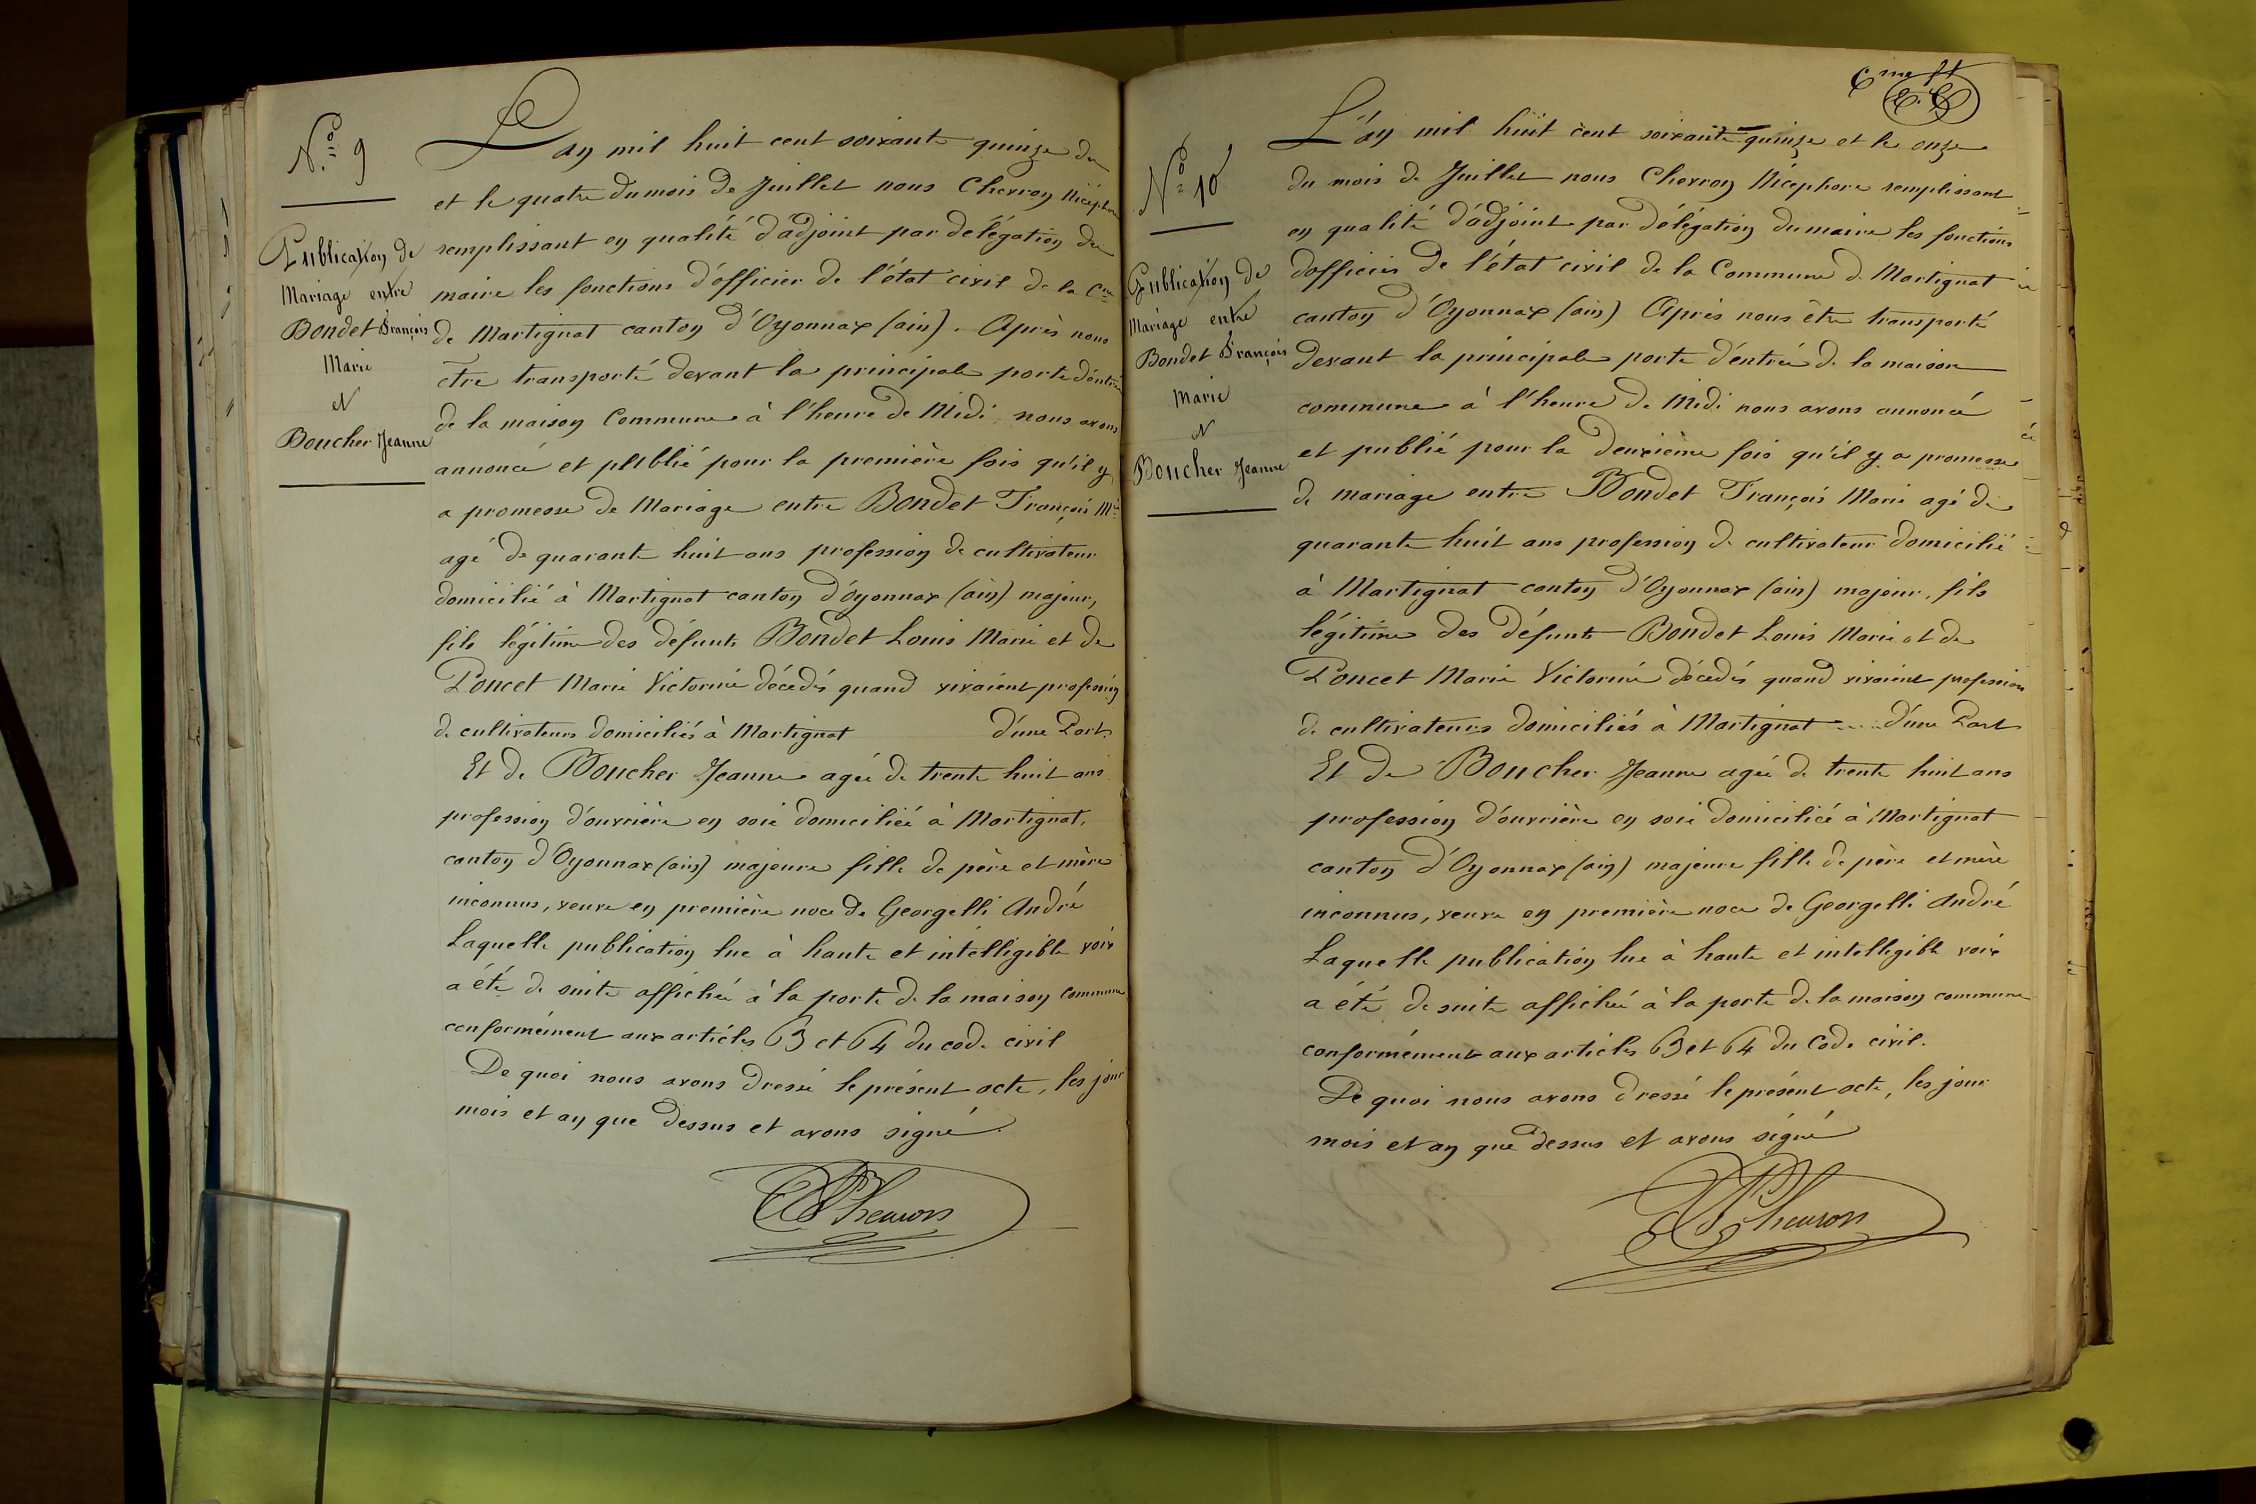 N.º 9
Publication de
Mariage entre
Bondet François
Marie
et
Boucher Jeanne
L'an mil huit cent soixante quinze du
et le quatre du mois de Juillet nous Chevron Nicéphore
remplissant en qualité d'adjoint par délégation du
maire les fonctions d'officier de l'état civil de la Cne
de Martignat canton d'Oyonnax (ain). Après nous
être transporté devant la principale porte d'entrée
de la maison Commune à l'heure de Midi nous avons
annoncé et publié pour la première fois qu'il y
a promesse de Mariage entre Bondet François Mie
agé de quarante huit ans profession de cultivateur
domicilié à Martignat canton d'Oyonnax (ain) majeur,
fils légitime des défunts Bondet Louis Marie et de
Poncet Marie Victorine décédés quand vivaient profession
de cultivateurs domiciliés à Martignat d'une Part.
Et de Boucher Jeanne agée de trente huit ans
profession d'ouvrière en soie domiciliée à Martignat,
canton d'Oyonnax (ain) majeure fille de père et mère
inconnus, veuve en première noce de Georgelli André
Laquelle publication lue à haute et intelligible voix
a été de suite affichée à la porte de la maison commune
conformément aux articles 63 et 64 du code civil
De quoi nous avons dressé le présent acte, les jour
mois et an que dessus et avons signé.
Chevron
N.º 10
Publication de
Mariage entre
Bondet François
Marie
et
Boucher Jeanne
L'an mil huit cent soixante quinze et le onze
du mois de Juillet nous Chevron Nicéphore remplissant
en qualité d'adjoint par délégation du maire les fonctions
d'officier de l'état civil de la Commune de Martignat
canton d'Oyonnax (ain) Après nous être transporté
devant la principale porte d'entrée de la maison
commune à l'heure de Midi nous avons annoncé
et publié pour la deuxième fois qu'il y a promesse
de mariage entre Bondet François Marie agé de
quarante huit ans profession de cultivateur domicilié
à Martignat canton d'Oyonnax (ain) majeur, fils
légitime des défunts Bondet Louis Marie et de
Poncet Marie Victorine décédés quand vivaient profession
de cultivateurs domiciliés à Martignat d'une Part
Et de Boucher Jeanne agée de trente huit ans
profession d'ouvrière en soie domiciliée à Martignat
canton d'Oyonnax (ain) majeure fille de père et mère
inconnus, veuve en première noce de Georgelli André
Laquelle publication lue à haute et intelligible voix
a été de suite affichée à la porte de la maison commune
conformément aux articles 63 et 64 du Code civil.
De quoi nous avons dressé le présent acte, les jour
mois et an que dessus et avons signé
Chevron